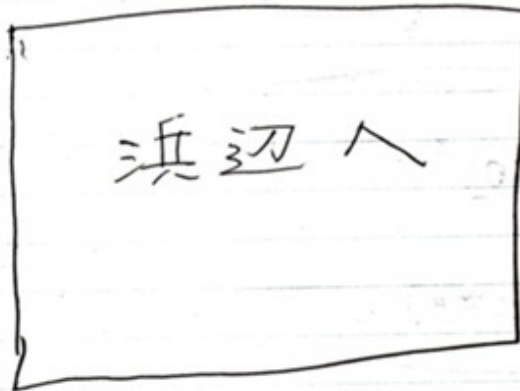 浜辺へ